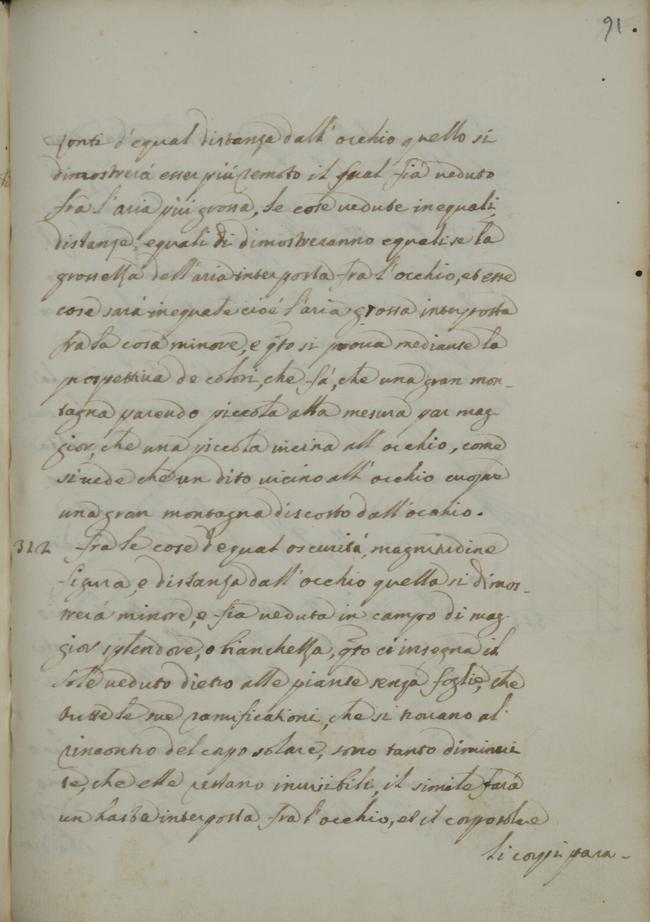 91
zonti d'equal distanza dall'occhio quello si
dimostrerá esser più remoto il qual fia veduto
fra l'aria più grossa, le cose vedute inequali
distanze, equali di dimostreranno equali se la
grossezza dell'aria interposta fra l'occhio, et esse
cose sará inequale cioé l'aria grossa interposta
fra la cosa minore, e qto si prova mediante la
prospettiva de colori, che fá, che una gran mon-
tagna parendo piccola alla mesura par mag-
gior, che una piccola vicina all'occhio, come
si vede che un dito vicino all'occhio cuopre
una gran montagna discosto dall'occhio.
312 fra le cose d'equal oscuritá, magnitudine
figura, e distanza dall'occhio quella si dimos-
trerá minore, e fia veduta in campo di mag-
gior splendore, o bianchezza, qto ci insegna il
sole veduto dietro alle piante senza foglie, che
tutte le sue ramificationi, che si trovano al
rincontro del corpo solare, sono tanto diminui
te, che elle restano invisibili, il simile fará
un hasta interposta fra l'occhio, et il corpo solare
li corpi para-